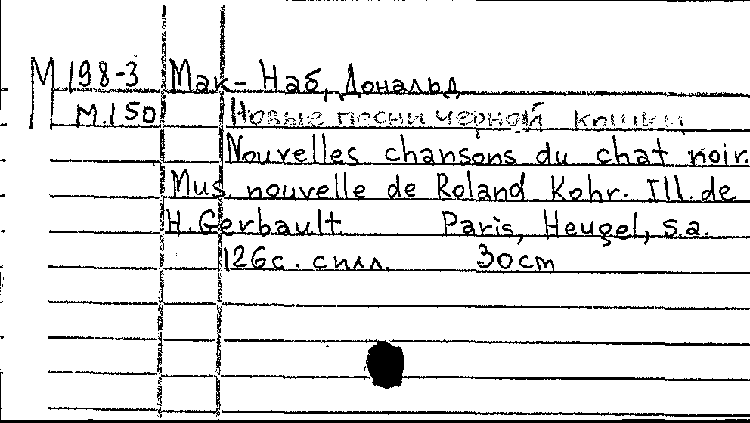 М 198-3 Мак-Наб, Дональд
М.150 Новые песни черной кошки
Nouvelles chansons du chat noir.
Mus nouvelle de Roland Kohr. Ill. de
H. Gerbault Paris, Heugel, s.a.
126с. силл. 30cm